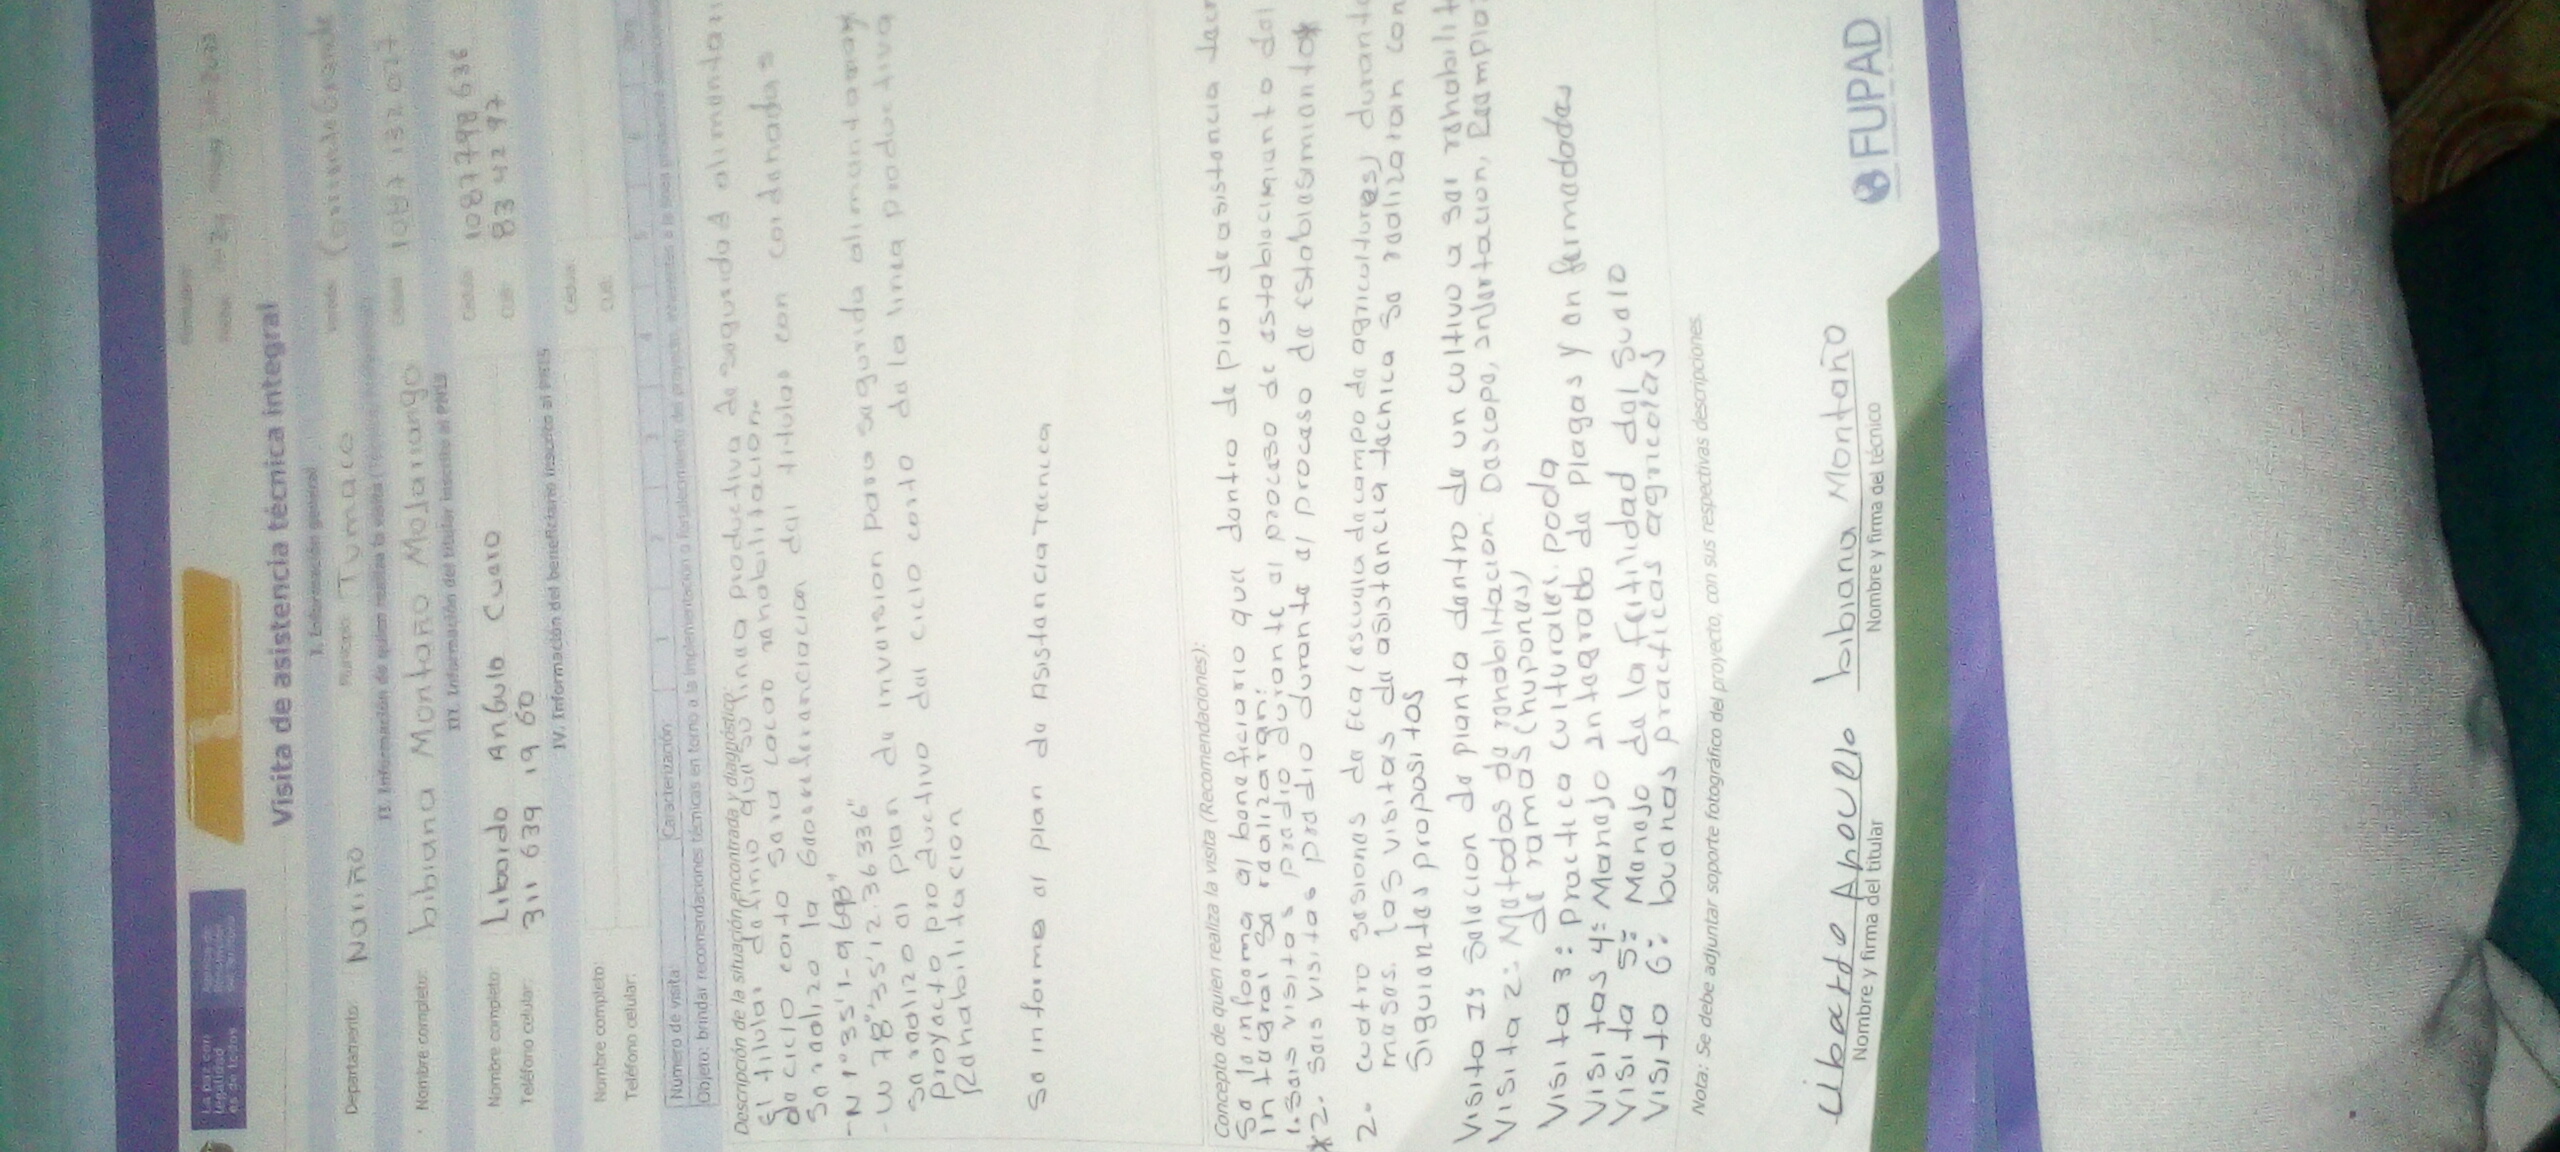 La paz con
legalidad
es de todos
Fecha: 24
Visita de asistencia técnica integral
I. Información general
Departamento: Nariño Municipio: Tumaco Vereda:
II. Información de quien realiza la visita
Nombre completo: bibiana Montaño Mojarango Cédula: 1087 132027
III. Información del titular inscrito al PNIS
Nombre completo: Libardo Angulo Cuaro Cédula: 1087798636
Teléfono celular: 311 639 19 60 CUB: 83 42 97
IV. Información del beneficiario inscrito al PNIS
Nombre completo: Cédula:
Teléfono celular: CUB:
Número de visita: Caracterización 1 2 3 4 5 6
Objeto: brindar recomendaciones técnicas en torno a la implementación o fortalecimiento del proyecto, inherentes a la línea productiva
Descripción de la situación encontrada y diagnóstico:
El titular definio que su linea productiva de seguridad alimentari
de ciclo corto sera cacao rehabilitacion.
Se realizo la Georeferenciacion del titular con cordenadas
-N 1°35'1.9698"
-W 78°35'12.36336"
Se realizo el plan de invercion para segurida alimentaria y
proyecto productivo del ciclo corto de la linea productiva
Rehabilitacion
Se informo el plan de Asistencia Tecnica
Concepto de quien realiza la visita (Recomendaciones):
Se le informa al beneficiario que dentro de plan de asistencia tecn
integral se realizaran:
1. Seis visitas predio durante el proceso de establecimiento del
2. seis visitas predio durante el proceso de establesimiento
2. cuatro sesiones de Eca (escuela de campo de agricultures) durante
meses. las visitas de asistencia tecnica se realizaran con
siguientes propositos
Visita 1: Selecion de planta dentro de un cultivo a ser rehabilit
Visita 2: Metodos de rehabilitacion: Descope, enjertacion, Reemplazo
de ramas (huponas)
Visita 3: practica culturales: poda
Visitas 4: Manejo integrado de plagas y en fermedades
Visita 5: Manejo de la fertilidad del suelo
Visita 6: buenas practicas agricolas
Nota: Se debe adjuntar soporte fotográfico del proyecto, con sus respectivas descripciones.
bibiana Montaño
Nombre y firma del titular Nombre y firma del técnico
FUPAD